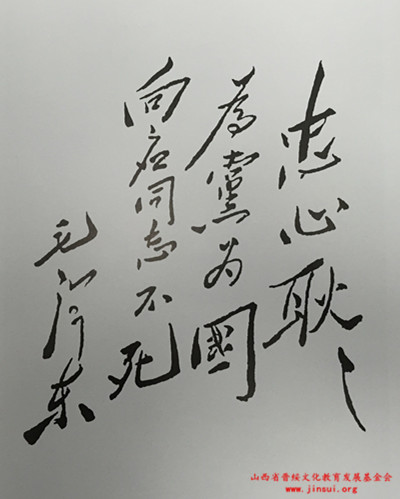 忠心耿々
為黨为國
向应同志不死
毛泽东
山西省晋绥文化教育发展基金会
www.jinsui.org